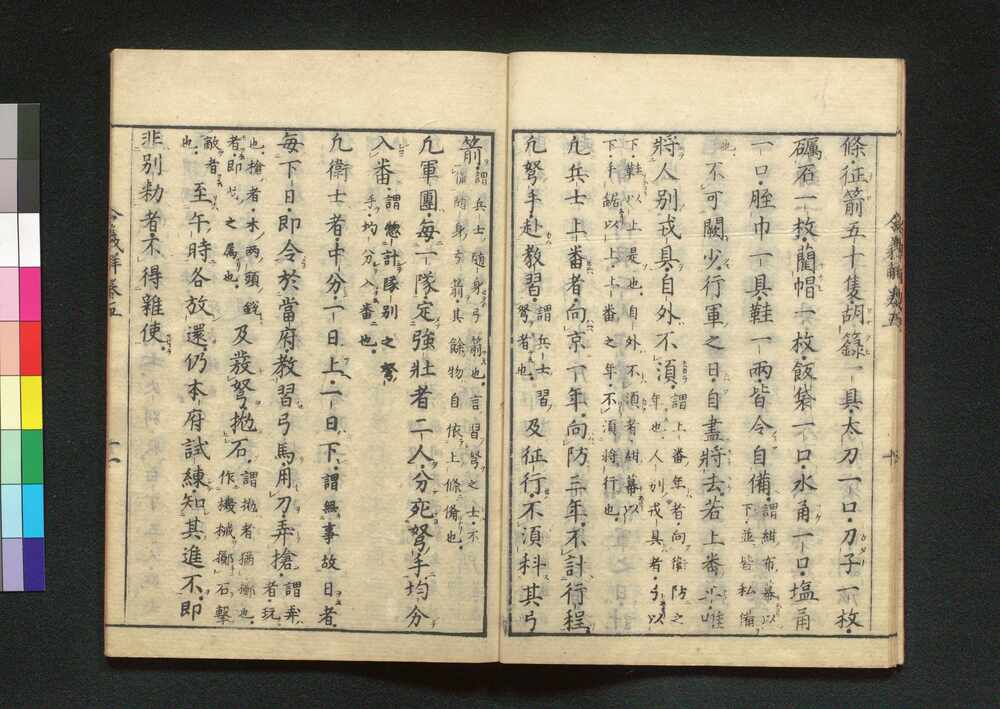 條。征箭五十隻。胡籙一具。太刀一口。刀子一枚。
礪石一枚。藺帽一枚。飯袋一口。水甬一口。塩甬
一口。脛巾一具。鞋一兩。皆令自備。謂紺布幕以
下。並皆私備
也。不可闕少。行軍之日。自盡將去。若上番年。唯
將人別戎具。自外不須。謂上番年者。向衛防之
年也。人別戎具者。弓以
下。鞋以上是也。自外不須者。紺幕以
下。鋸以上。上番之年。不須將行也。
凢兵士上番者。向京一年。向防三年。不計行程。
凢弩手赴教習。謂兵士習
弩者也。及征行。不須科其弓
箭。謂兵士随身弓箭也。言習弩之士。不
備随身弓箭。其餘物自依上條備也。
凢軍團。每一隊定強壯者二人。分充弩手。均分
入番。謂惣計隊別之弩
手。均分入番也。
凢衛士者。中分。一日上。一日下。謂無事故日者。
每下日。即令於當府教習弓馬。用刀。弄搶。謂弄
者。玩
也。搶者。木兩頭銳
者。即戈之属也。及發弩。拋石。謂拋者猶擲也。
作機械擲石擊
敵者也。至午時各放還。仍本府試練。知其進不。即
非別勅者。不得雜使。
令義解卷五
十
令義解卷五
十一